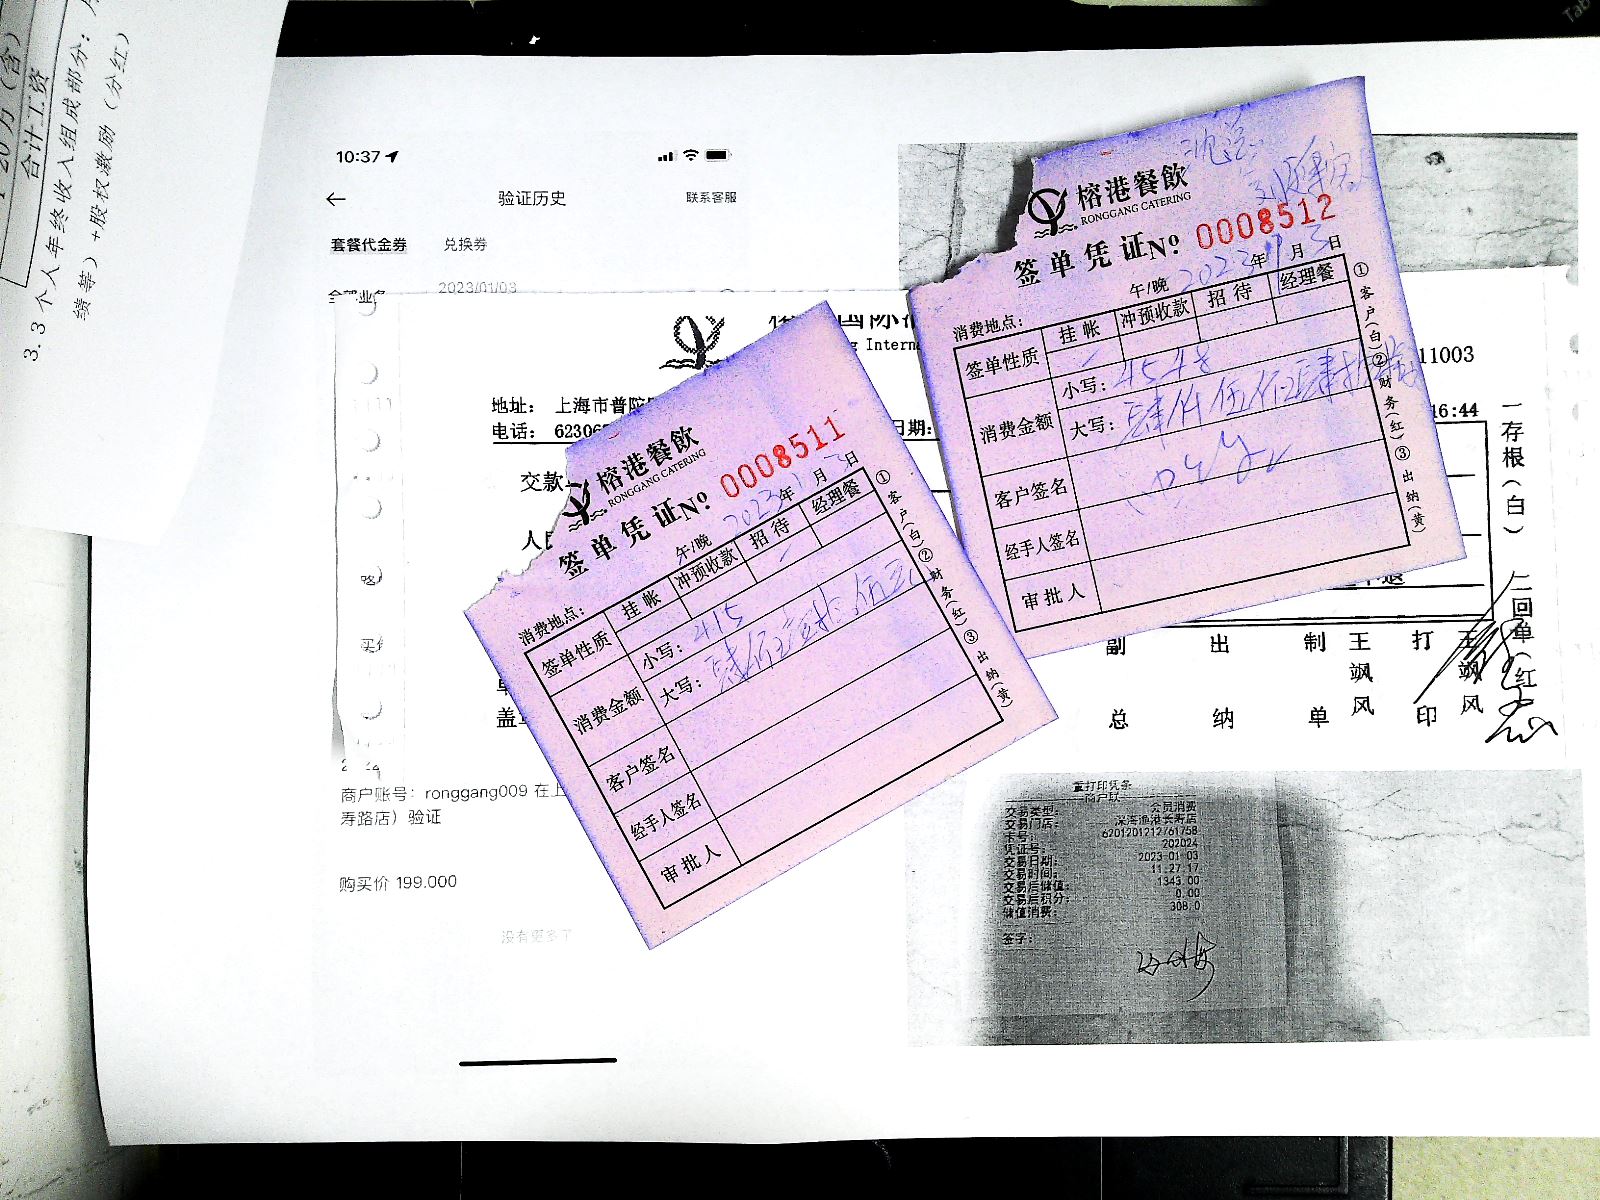 20万（含）
合计工资
3.3 个人年终收入组成部分：
绩等）+股权激励（分红）
10:37
验证历史
联系客服
套餐代金券
兑换券
2023/01/03
地址： 上海市普陀
电话： 6230
交款
商户账号：ronggang009 在上
寿路店）验证
购买价 199.000
没有更多了
国际
Intern
日期：
11003
16:44
一存根（白）
二回单（红
副总
出纳
制单
王飒风
打印
王飒风
榕港餐飲
RONGGANG CATERING
签单凭证№ 0008511
2023年1月3日
午/晚
消费地点：
签单性质
挂帐
冲预收款
招待
经理餐
消费金额
小写：415
大写：肆佰壹拾伍元
客户签名
经手人签名
审批人
①客户（白）②财务（红）③出纳（黄）
榕港餐飲
RONGGANG CATERING
签单凭证№ 0008512
2023年1月3日
午/晚
消费地点：
签单性质
挂帐
冲预收款
招待
经理餐
消费金额
小写：4548
大写：肆仟伍佰肆拾捌
客户签名
经手人签名
审批人
①客户（白）②财务（红）③出纳（黄）
重打印凭条
商户联
交易类型： 会员消费
交易门店： 深湾渔港长寿店
卡号： 6201201212761758
凭证号： 202024
交易日期： 2023-01-03
交易时间： 11:27:17
交易后储值： 1343.00
交易后积分： 0.00
储值消费： 308.0
签字：